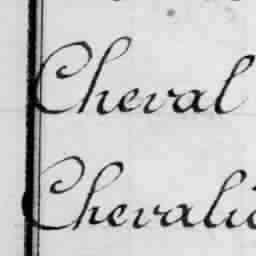 Cheval
Chevali